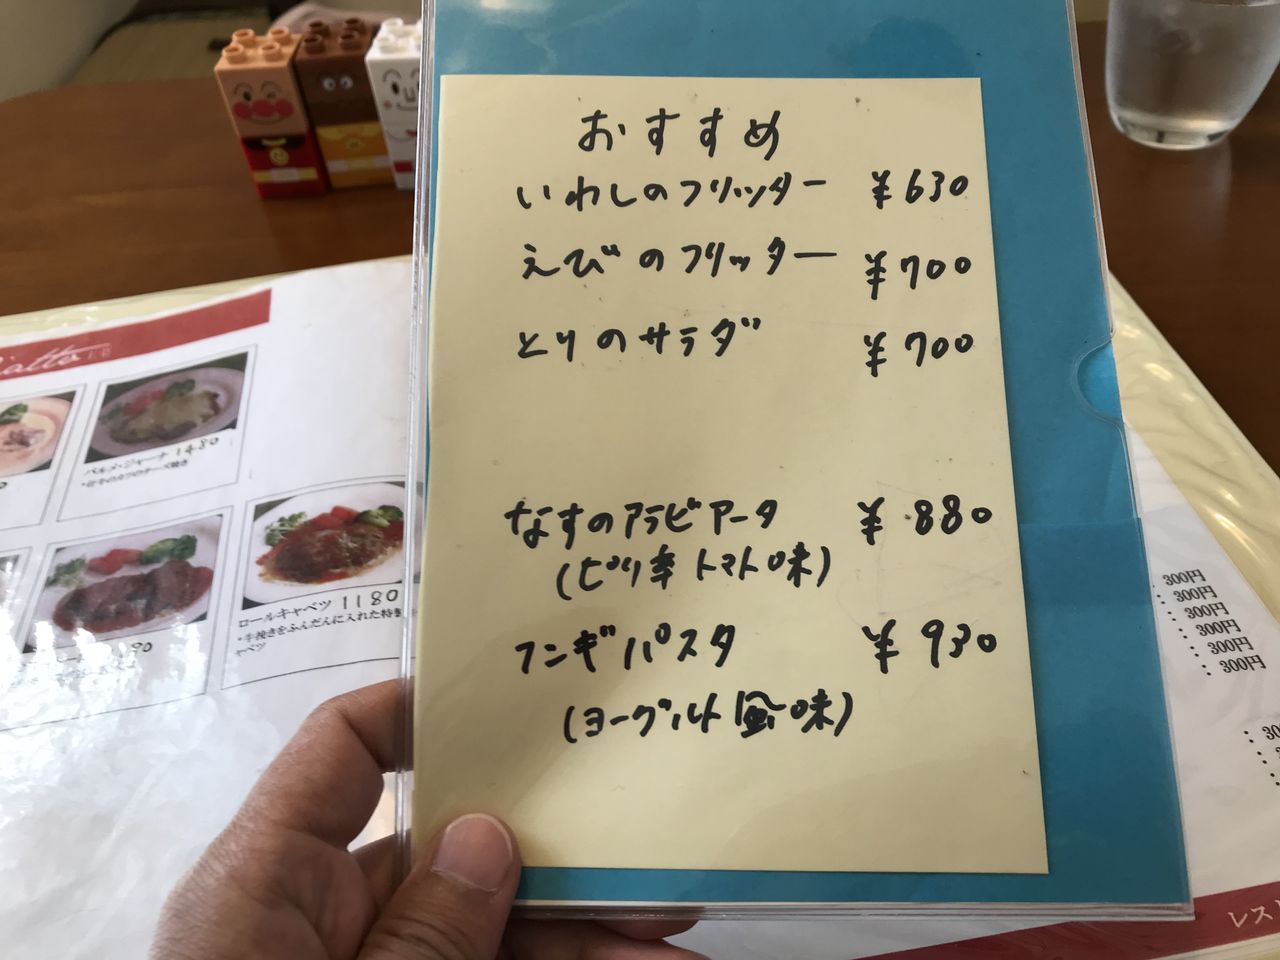 おすすめ
いわしのフリッター ¥630
えびのフリッター ¥700
とりのサラダ ¥700
なすのアラビアータ ¥880
(ピリ辛トマト味)
フンギパスタ ¥930
(ヨーグルト風味)
パルメ・ジャーナ 1480
・仔牛のカツのチーズ焼き
ロールキャベツ 1180
・牛挽きをふんだんに入れた特製
ャベツ
: 300円
: 300円
: 300円
: 300円
: 300円
: 300円
レスト